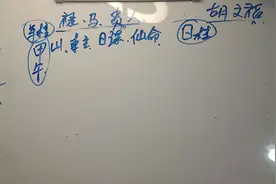 年柱 禄、马、贵人 胡文裕
甲午 山、来主、日课、仙命、 日柱